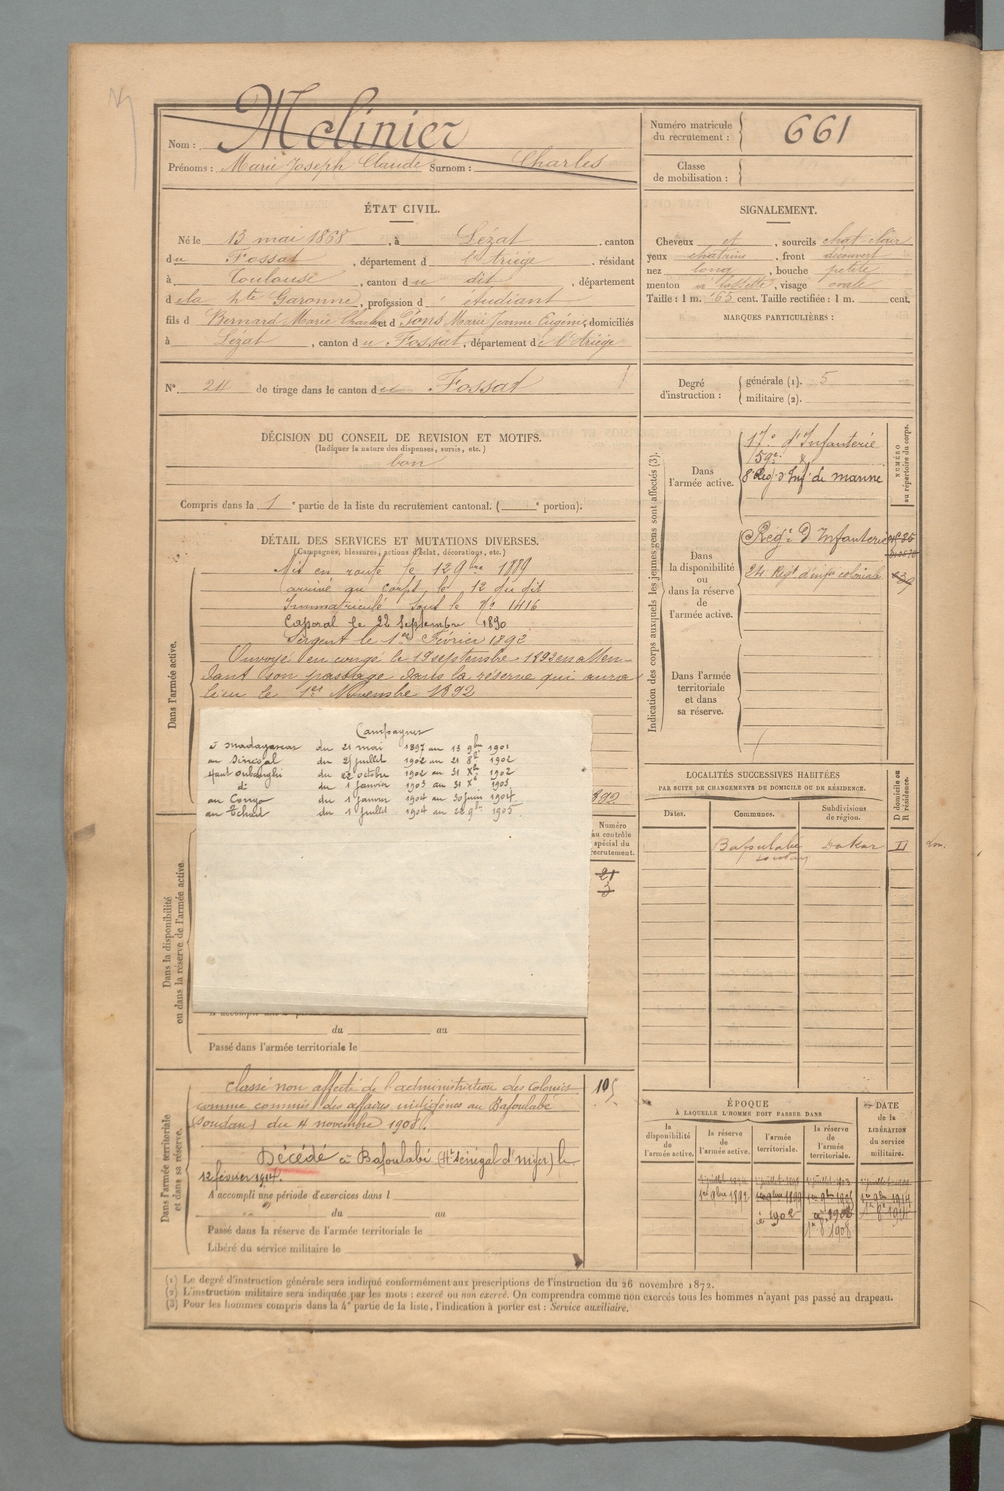 Nom : Molinier
Prénoms : Marie Joseph Claude Surnom : Charles
Numéro matricule du recrutement : 661
Classe de mobilisation :
ÉTAT CIVIL.
Né le 13 mai 1868, à Lézat, canton
du Fossat, département d l'Ariège, résidant
à Toulouse, canton du dit, département
d ela hte Garonne, profession d' étudiant
fils d Bernard Marie Charles et d Pons Marie Jeanne Eugénie, domiciliés
à Lézat, canton du Fossat, département de l'Ariège
N° 24 de tirage dans le canton du Fossat
SIGNALEMENT.
Cheveux et, sourcils chat. clair
yeux chatains, front découvert
nez long, bouche petite
menton à fossette, visage ovale
Taille : 1 m. 63 cent. Taille rectifiée : 1 m. cent.
MARQUES PARTICULIÈRES :
Degré d'instruction : générale (1). 5
militaire (2).
DÉCISION DU CONSEIL DE REVISION ET MOTIFS.
(Indiquer la nature des dispenses, sursis, etc.)
bon
Compris dans la 1e partie de la liste du recrutement cantonal. ( e portion).
DÉTAIL DES SERVICES ET MUTATIONS DIVERSES.
(Campagnes, blessures, actions d'éclat, décorations, etc.)
Dans l'armée active.
Mis en route le 12 9bre 1889
arrivé au corps le 12 du dit
Immatriculé sous le N° 1416
Caporal le 22 Septembre 1890
Sergent le 1er Février 1892
Envoyé en congé le 19 septembre 1892 en atten-
dant son passage dans la réserve qui aura
lieu le 1er Novembre 1892
Campagnes
à Madagascar du 21 mai 1897 au 13 9bre 1901
au Sénégal du 25 juillet 1902 au 21 8bre 1902
Haut Oubanghi du 22 octobre 1902 au 31 Xbre 1902
di du 1 janvier 1903 au 31 Xbre 1903
au Congo du 1 janvier 1904 au 30 juin 1904
au Tchad du 1 juillet 1904 au 28 9bre 1905
892
Numéro au contrôle spécial du recrutement.
21
3
Dans la disponibilité ou dans la réserve de l'armée active
du au
Passé dans l'armée territoriale le
Dans l'armée territoriale et dans sa réserve.
Classé non affecté de l'administration des Colonies
comme commis des affaires indigènes au Bafoulabé
(Soudan) du 4 novembre 1908.
105
Décédé à Bafoulabé (Ht Sénégal et Niger) le
12 février 1914.
A accompli une période d'exercices dans l
du au
Passé dans la réserve de l'armée territoriale le
Libéré du service militaire le
Indication des corps auxquels les jeunes gens sont affectés (3).
Dans l'armée active.
17e d'Infanterie
59e
8e Rég. d'Inf. de marine
NUMÉRO au répertoire du corps.
Dans la disponibilité ou dans la réserve de l'armée active.
Régt d'Infanterie
24 Régt d'infie coloniale
Dans l'armée territoriale et dans sa réserve.
LOCALITÉS SUCCESSIVES HABITÉES
PAR SUITE DE CHANGEMENTS DE DOMICILE OU DE RÉSIDENCE.
Dates. Communes. Subdivisions de région. D domicile ou R résidence.
Bafoulabé Dakar
Soudan
ÉPOQUE
À LAQUELLE L'HOMME DOIT PASSER DANS
la disponibilité de l'armée active. la réserve de l'armée active. l'armée territoriale. la réserve de l'armée territoriale.
DATE de la LIBÉRATION du service militaire.
1er 9bre 1892 1er 9bre 1899 1er 9bre 1905 1er 9bre 1914
1902 1908
(1) Le degré d'instruction générale sera indiqué conformément aux prescriptions de l'instruction du 26 novembre 1872.
(2) L'instruction militaire sera indiquée par les mots : exercé ou non exercé. On comprendra comme non exercés tous les hommes n'ayant pas passé au drapeau.
(3) Pour les hommes compris dans la 4e partie de la liste, l'indication à porter est : Service auxiliaire.